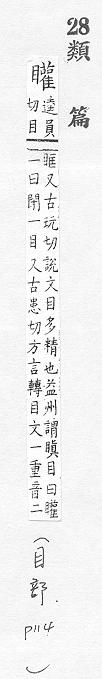 28 類篇
矔
逵員
切目
眶又古玩切說文目多精也益州謂瞋目曰矔
一曰閉一目又古患切方言轉目文一重音二
(目部. p114)